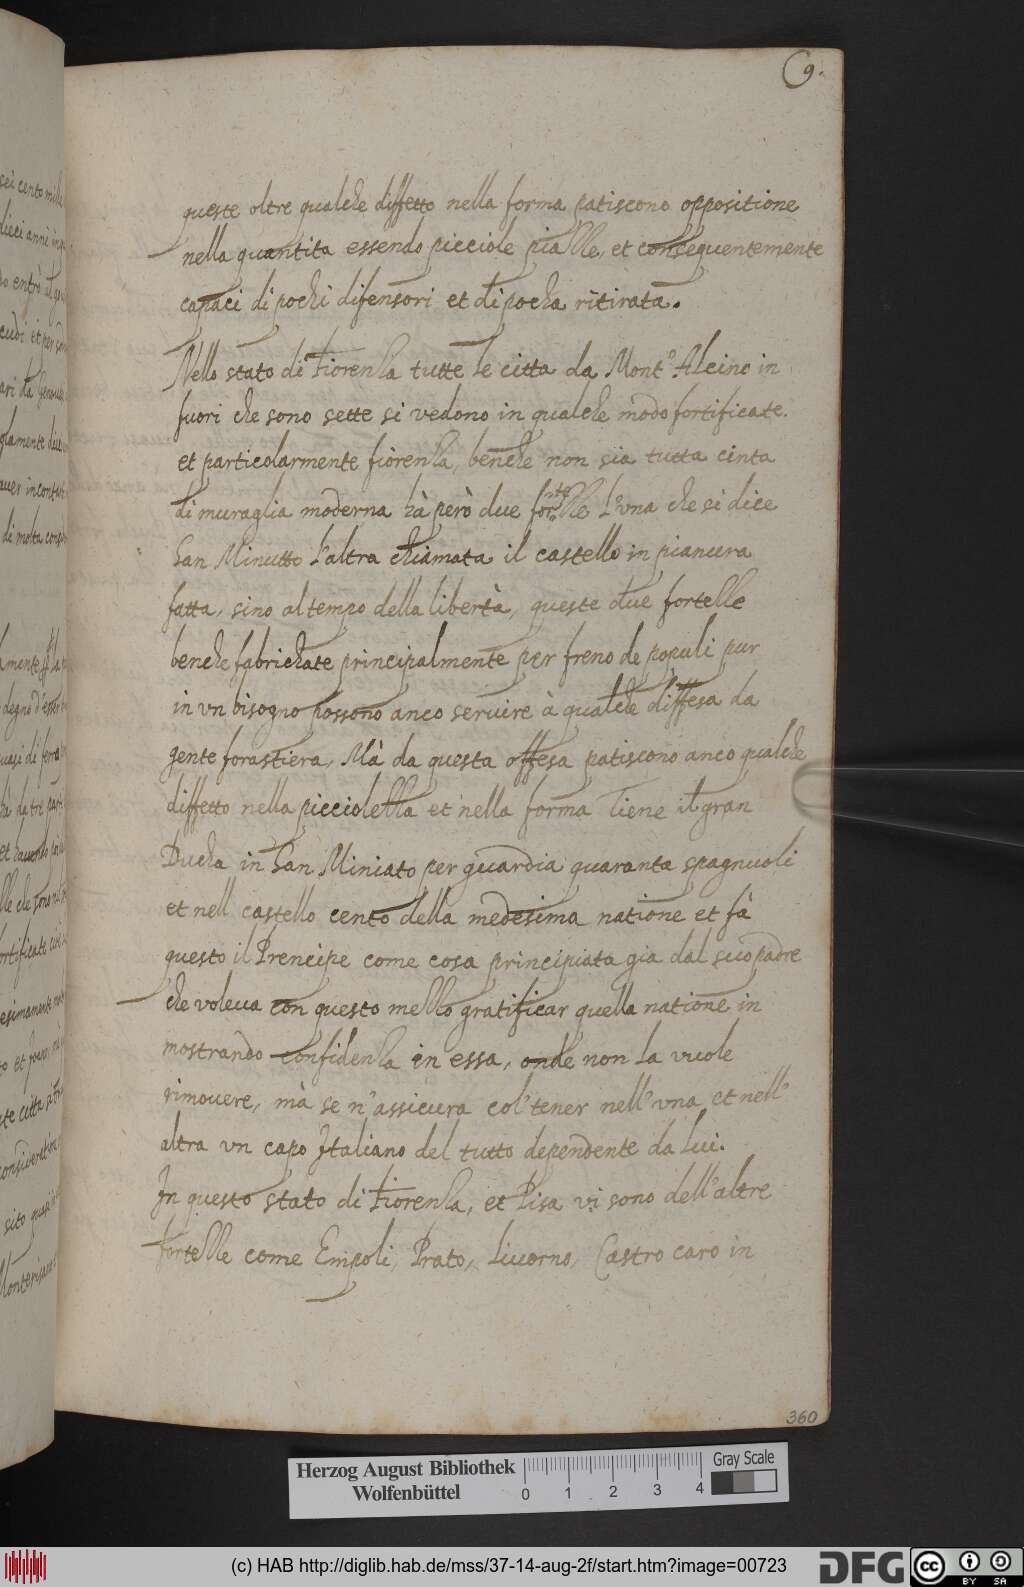 9.
queste oltre qualche diffetto nella forma patiscono oppositione
nella quantita essendo picciole piazze, et consequentemente
capaci di pochi difensori et di pocha ritirata.
Nello stato di Fiorenza tutte le citta da Mont.º Alcino in
fuori che sono sette si vedono in qualche modo fortificate.
et particolarmente fiorenza, benche non sia tutta cinta
di muraglia moderna hà però due fortezze l'una che si dice
San Minutto l'altra chiamata il castello in pianura
fatta, sino al tempo della libertà, queste due fortezze
benche fabrichate principalmente per freno de populi pur
in vn bisogno possono anco seruire à qualche diffesa da
gente forastiera, Mà da questa offesa patiscono anco qualche
diffetto nella picciolezza et nella forma Tiene il gran
Ducha in San Miniato per guardia quaranta spagnuoli
et nell castello cento della medesima natione et fà
questo il Prencipe come cosa principiata gia dal suo padre
che voleua con questo mezzo gratificar quella natione in
mostrando confidenza in essa, onde non la vuole
rimouere, mà se n'assicura col'tener nell'vna et nell'
altra vn capo Italiano del tutto dependente da lui.
In questo stato di Fiorenza, et Pisa vi sono dell'altre
fortezze come Empoli, Prato, Liuorno, Castro caro in
360
Herzog August Bibliothek
Wolfenbüttel
0 1 2 3 4
Gray Scale
(c) HAB http://diglib.hab.de/mss/37-14-aug-2f/start.htm?image=00723
DFG
cc BY SA